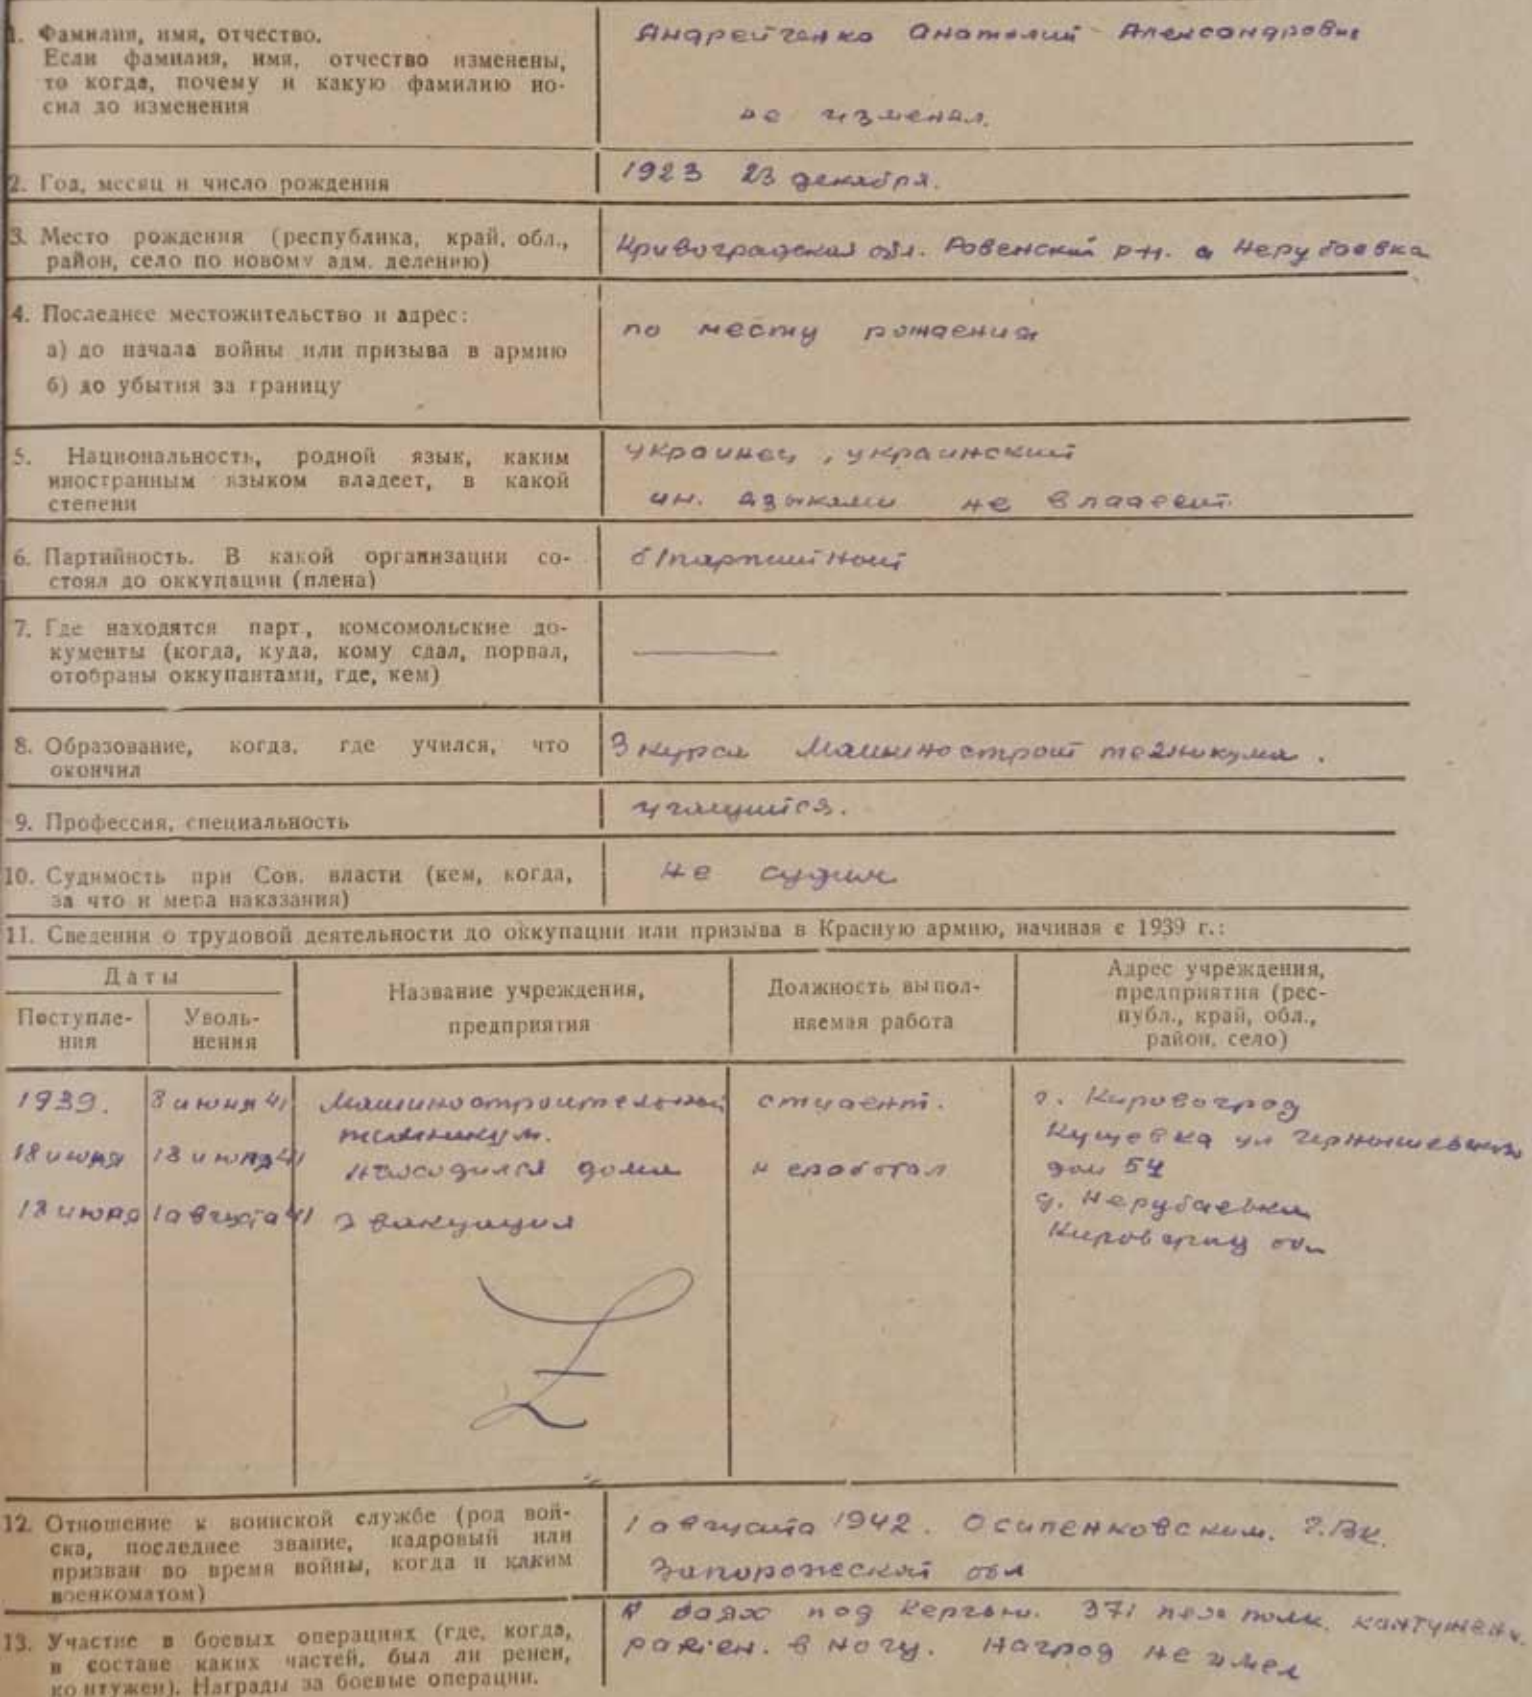 1. Фамилия, имя, отчество.
Если фамилия, имя, отчество изменены,
то когда, почему и какую фамилию но-
сил до изменения
Андрейченко Анатолий Александрович
не изменял.
2. Год, месяц и число рождения
1923 23 декабря.
3. Место рождения (республика, край, обл.,
район, село по новому адм. делению)
обл. Ровенский р-н. Нерубаевка
4. Последнее местожительство и адрес:
а) до начала войны или призыва в армию
б) до убытия за границу
по месту рождения
5. Национальность, родной язык, каким
иностранным языком владеет, в какой
степени
украинец, украинский
ин. языками не владеет.
6. Партийность. В какой организации со-
стоял до оккупации (плена)
б/партийной
7. Где находятся парт., комсомольские до-
кументы (когда, куда, кому сдал, порвал,
отобраны оккупантами, где, кем)
8. Образование, когда, где учился, что
окончил
3 курса Машиностроит техникума.
9. Профессия, специальность
учащийся.
10. Судимость при Сов. власти (кем, когда,
за что и мера наказания)
не судим
11. Сведения о трудовой деятельности до оккупации или призыва в Красную армию, начиная с 1939 г.:
Даты
Поступле-
ния
Уволь-
нения
Название учреждения,
предприятия
Должность выпол-
няемая работа
Адрес учреждения,
предприятия (рес-
публ., край, обл.,
район, село)
1939. 41 Машиностроительный студент. г. Кировоград
техникум. Кущевка ул Чернышевского
41 находился дома неработал дом 54
1 августа 41 эвакуация д. Нерубаевка
обл
12. Отношение к воинской службе (род вой-
ска, последнее звание, кадровый или
призван во время войны, когда и каким
военкоматом)
1 августа 1942. Осипенковским. Г.ВК.
Запорожской обл
13. Участие в боевых операциях (где, когда,
в составе каких частей, был ли ренен,
контужен). Награды за боевые операции.
В боях под Керчью. 371 полк. контужен.
ранен. в ногу. Наград не имел